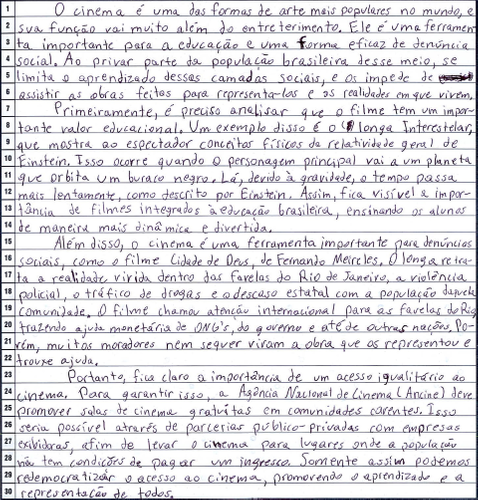 1 O cinema é uma das formas de arte mais populares no mundo, e
2 sua função vai muito além do entreterimento. Ele é uma ferramen
3 ta importante para a educação e uma forma eficaz de denúncia
4 social. Ao privar parte da população brasileira desse meio, se
5 limita o aprendizado dessas camadas sociais, e os impede de
6 assistir as obras feitas para representa-los e as realidades em que vivem.
7 Primeiramente, é preciso analisar que o filme tem um impor-
8 tante valor educacional. Um exemplo disso é o longa Interestelar,
9 que mostra ao espectador conceitos físicos da relatividade geral de
10 Einstein. Isso ocorre quando o personagem principal vai a um planeta
11 que orbita um buraco negro. Lá, devido à gravidade, o tempo passa
12 mais lentamente, como descrito por Einstein. Assim, fica visível a impor-
13 tância de filmes integrados à educação brasileira, ensinando os alunos
14 de maneira mais dinâmica e divertida.
15 Além disso, o cinema é uma ferramenta importante para denúncias
16 sociais, como o filme Cidade de Deus, de Fernando Meircles. O longa retra-
17 ta a realidade vivida dentro das favelas do Rio de Janeiro, a violência
18 policial, o tráfico de drogas e o descaso estatal com a população daquela
19 comunidade. O filme chamou atenção internacional para as favelas do Rio,
20 trazendo ajuda monetária de ONG's, do governo e até de outras nações. Po-
21 rém, muitos moradores nem sequer viram a obra que os representou e
22 trouxe ajuda.
23 Portanto, fica claro a importância de um acesso igualitário ao
24 cinema. Para garantir isso, a Agência Nacional de Cinema (Ancine) deve
25 promover salas de cinema gratuitas em comunidades carentes. Isso
26 seria possível através de parcerias público-privadas com empresas
27 exibidoras, afim de levar o cinema para lugares onde a população
28 não tem condições de pagar um ingresso. Somente assim podemos
29 redemocratizar o acesso ao cinema, promovendo o aprendizado e a
30 representação de todos.